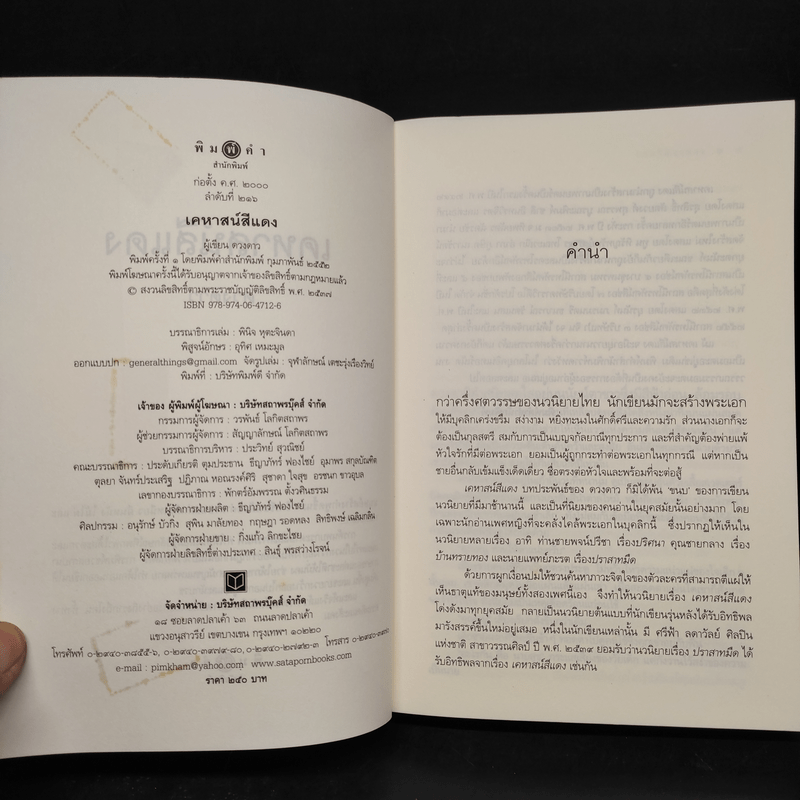 พิมพ์คำ
สำนักพิมพ์
ก่อตั้ง ค.ศ. ๒๐๐๐
ลำดับที่ ๒๑๖
เคหาสน์สีแดง
ผู้เขียน ดวงดาว
พิมพ์ครั้งที่ ๑ โดยพิมพ์คำสำนักพิมพ์ กุมภาพันธ์ ๒๕๕๒
พิมพ์โฆษณาครั้งนี้ได้รับอนุญาตจากเจ้าของลิขสิทธิ์ตามกฎหมายแล้ว
© สงวนลิขสิทธิ์ตามพระราชบัญญัติลิขสิทธิ์ พ.ศ. ๒๕๓๗
ISBN 978-974-06-4712-6
บรรณาธิการเล่ม : พินิจ หุตะจินดา
พิสูจน์อักษร : อุทิศ เหมะมูล
ออกแบบปก : generalthings@gmail.com จัดรูปเล่ม : จุฬาลักษณ์ เดชะรุ่งเรืองวิทย์
พิมพ์ที่ : บริษัทพิมพ์ดี จำกัด
เจ้าของ ผู้พิมพ์ผู้โฆษณา : บริษัทสถาพรบุ๊คส์ จำกัด
กรรมการผู้จัดการ : วรพันธ์ โลกิตสถาพร
ผู้ช่วยกรรมการผู้จัดการ : สัญญาลักษณ์ โลกิตสถาพร
บรรณาธิการบริหาร : ประวิทย์ สุวณิชย์
คณะบรรณาธิการ : ประดับเกียรติ ตุมประธาน ธีญาภัทร์ ฟองไชย์ อุมาพร สกุลบัณฑิต
ตุลยา จันทร์ประเสริฐ ปฏิภาณ หอณรงค์ศิริ สุชาดา ใจสุข อรชนก ขาวอุบล
เลขากองบรรณาธิการ : พักตร์อัมพรรณ ตั้งวศินธรรม
ผู้จัดการฝ่ายผลิต : ธีญาภัทร์ ฟองไชย์
ศิลปกรรม : อนุรักษ์ บัวกิ่ง สุพิน มาลัยทอง กฤษฎา รอดหลง สิทธิพงษ์ เฉลิมกลิ่น
ผู้จัดการฝ่ายขาย : กิ่งแก้ว ลิกขะไชย
ผู้จัดการฝ่ายลิขสิทธิ์ต่างประเทศ : สินธุ์ พรสว่างโรจน์
จัดจำหน่าย : บริษัทสถาพรบุ๊คส์ จำกัด
๑๘ ซอยลาดปลาเค้า ๖๓ ถนนลาดปลาเค้า
แขวงอนุสาวรีย์ เขตบางเขน กรุงเทพฯ ๑๐๒๒๐
โทรศัพท์ ๐-๒๙๔๐-๓๘๕๕-๖, ๐-๒๙๔๐-๓๙๗๙-๘๐, ๐-๒๙๔๐-๒๗๙๒-๓ โทรสาร ๐-๒๙๔๐-
e-mail : pimkham@yahoo.com www.satapornbooks.com
ราคา ๒๔๐ บาท
คำนำ
กว่าครึ่งศตวรรษของนวนิยายไทย นักเขียนมักจะสร้างพระเอก
ให้มีบุคลิกเคร่งขรึม สง่างาม หยิ่งทะนงในศักดิ์ศรีและความรัก ส่วนนางเอกก็จะ
ต้องเป็นกุลสตรี สมกับการเป็นเบญจกัลยาณีทุกประการ และที่สำคัญต้องพ่ายแพ้
หัวใจรักที่มีต่อพระเอก ยอมเป็นผู้ถูกกระทำต่อพระเอกในทุกกรณี แต่หากเป็น
ชายอื่นกลับเข้มแข็งเด็ดเดี่ยว ซื่อตรงต่อหัวใจและพร้อมที่จะต่อสู้
เคหาสน์สีแดง บทประพันธ์ของ ดวงดาว ก็มิได้พ้น 'ขนบ' ของการเขียน
นวนิยายที่มีมาช้านานนี้ และเป็นที่นิยมของคนอ่านในยุคสมัยนั้นอย่างมาก โดย
เฉพาะนักอ่านเพศหญิงที่จะคลั่งไคล้พระเอกในบุคลิกนี้ ซึ่งปรากฏให้เห็นใน
นวนิยายหลายเรื่อง อาทิ ท่านชายพจน์ปรีชา เรื่องปริศนา คุณชายกลาง เรื่อง
บ้านทรายทอง และนายแพทย์ภะรต เรื่องปราสาทมืด
ด้วยการผูกเงื่อนปมให้ชวนค้นหาภาวะจิตใจของตัวละครที่สามารถตีแผ่ให้
เห็นธาตุแท้ของมนุษย์ทั้งสองเพศนี้เอง จึงทำให้นวนิยายเรื่อง เคหาสน์สีแดง
โด่งดังมาทุกยุคสมัย กลายเป็นนวนิยายต้นแบบที่นักเขียนรุ่นหลังได้รับอิทธิพล
มารังสรรค์ขึ้นใหม่อยู่เสมอ หนึ่งในนักเขียนเหล่านั้น มี ศรีฟ้า ลดาวัลย์ ศิลปิน
แห่งชาติ สาขาวรรณศิลป์ ปี พ.ศ. ๒๕๓๙ ยอมรับว่านวนิยายเรื่อง ปราสาทมืด ได้
รับอิทธิพลจากเรื่อง เคหาสน์สีแดง เช่นกัน